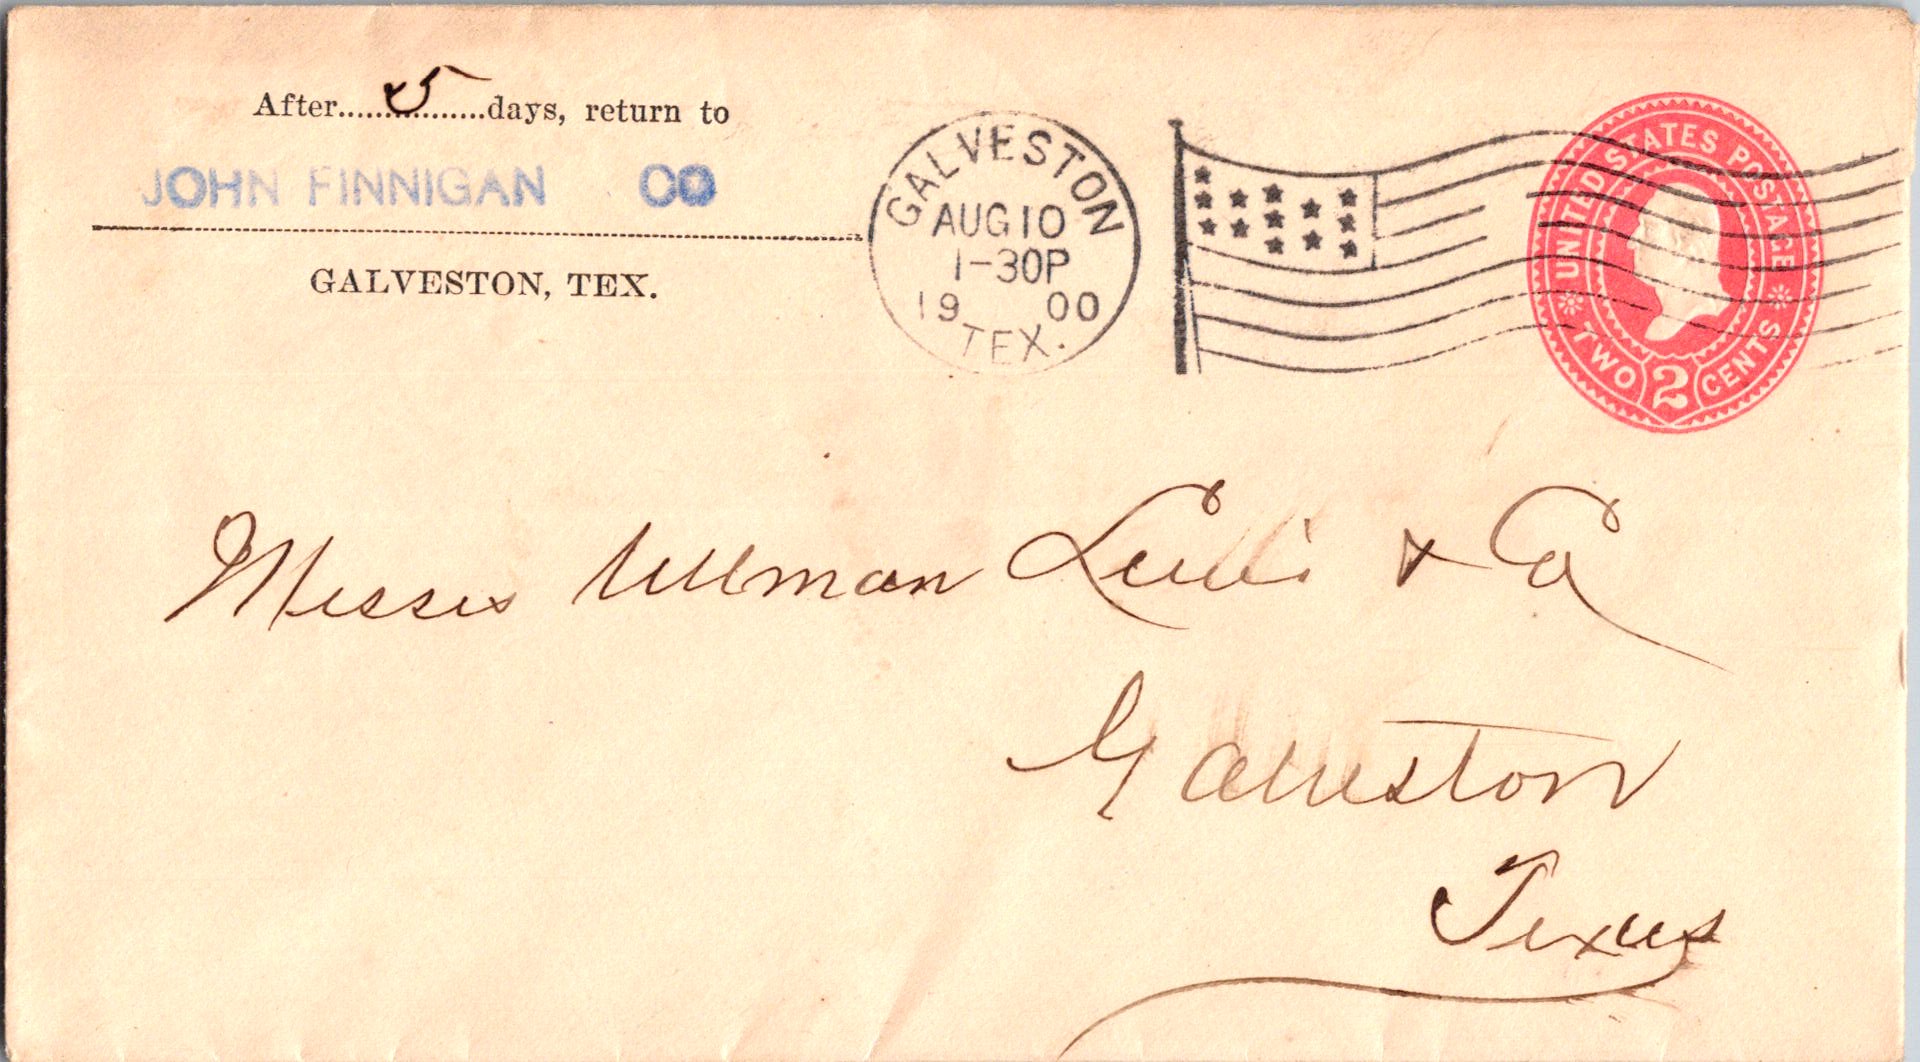 After.....5.....days, return to
JOHN FINNIGAN CO
GALVESTON, TEX.
GALVESTON
AUG 10
1-30P
19 00
TEX.
UNITED STATES POSTAGE
TWO 2 CENTS
Messrs Ullman Lewis & Co
Galveston
Texas